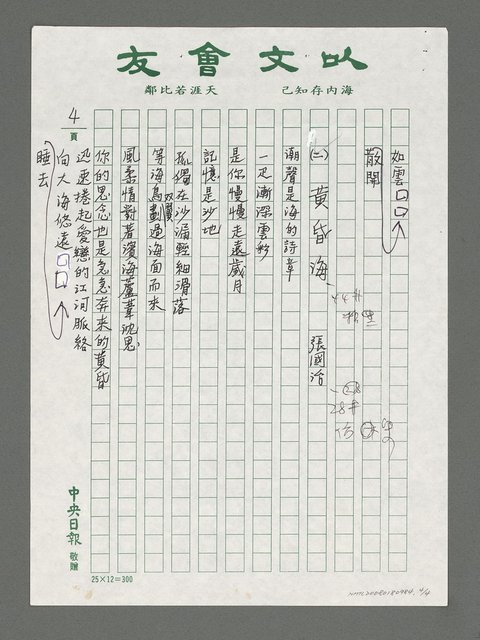 以文會友
海內存知己　天涯若比鄰
4
頁
如雲□□
散開
(二) 黃昏海　張國治
潮聲是海的詩章
一疋漸深雲彩
是你慢慢走遠歲月
記憶是沙地
孤獨在沙漏輕細滑落
等海鳥雙翼劃過海面而來
風柔情對著濱海蘆葦沈思
你的思念也是急急奔來的黃昏
迅速捲起愛戀的江河脈絡
向大海悠遠□□
睡去
28半
中央日報 敬贈
25×12=300
NMTL20080180984, 4/4